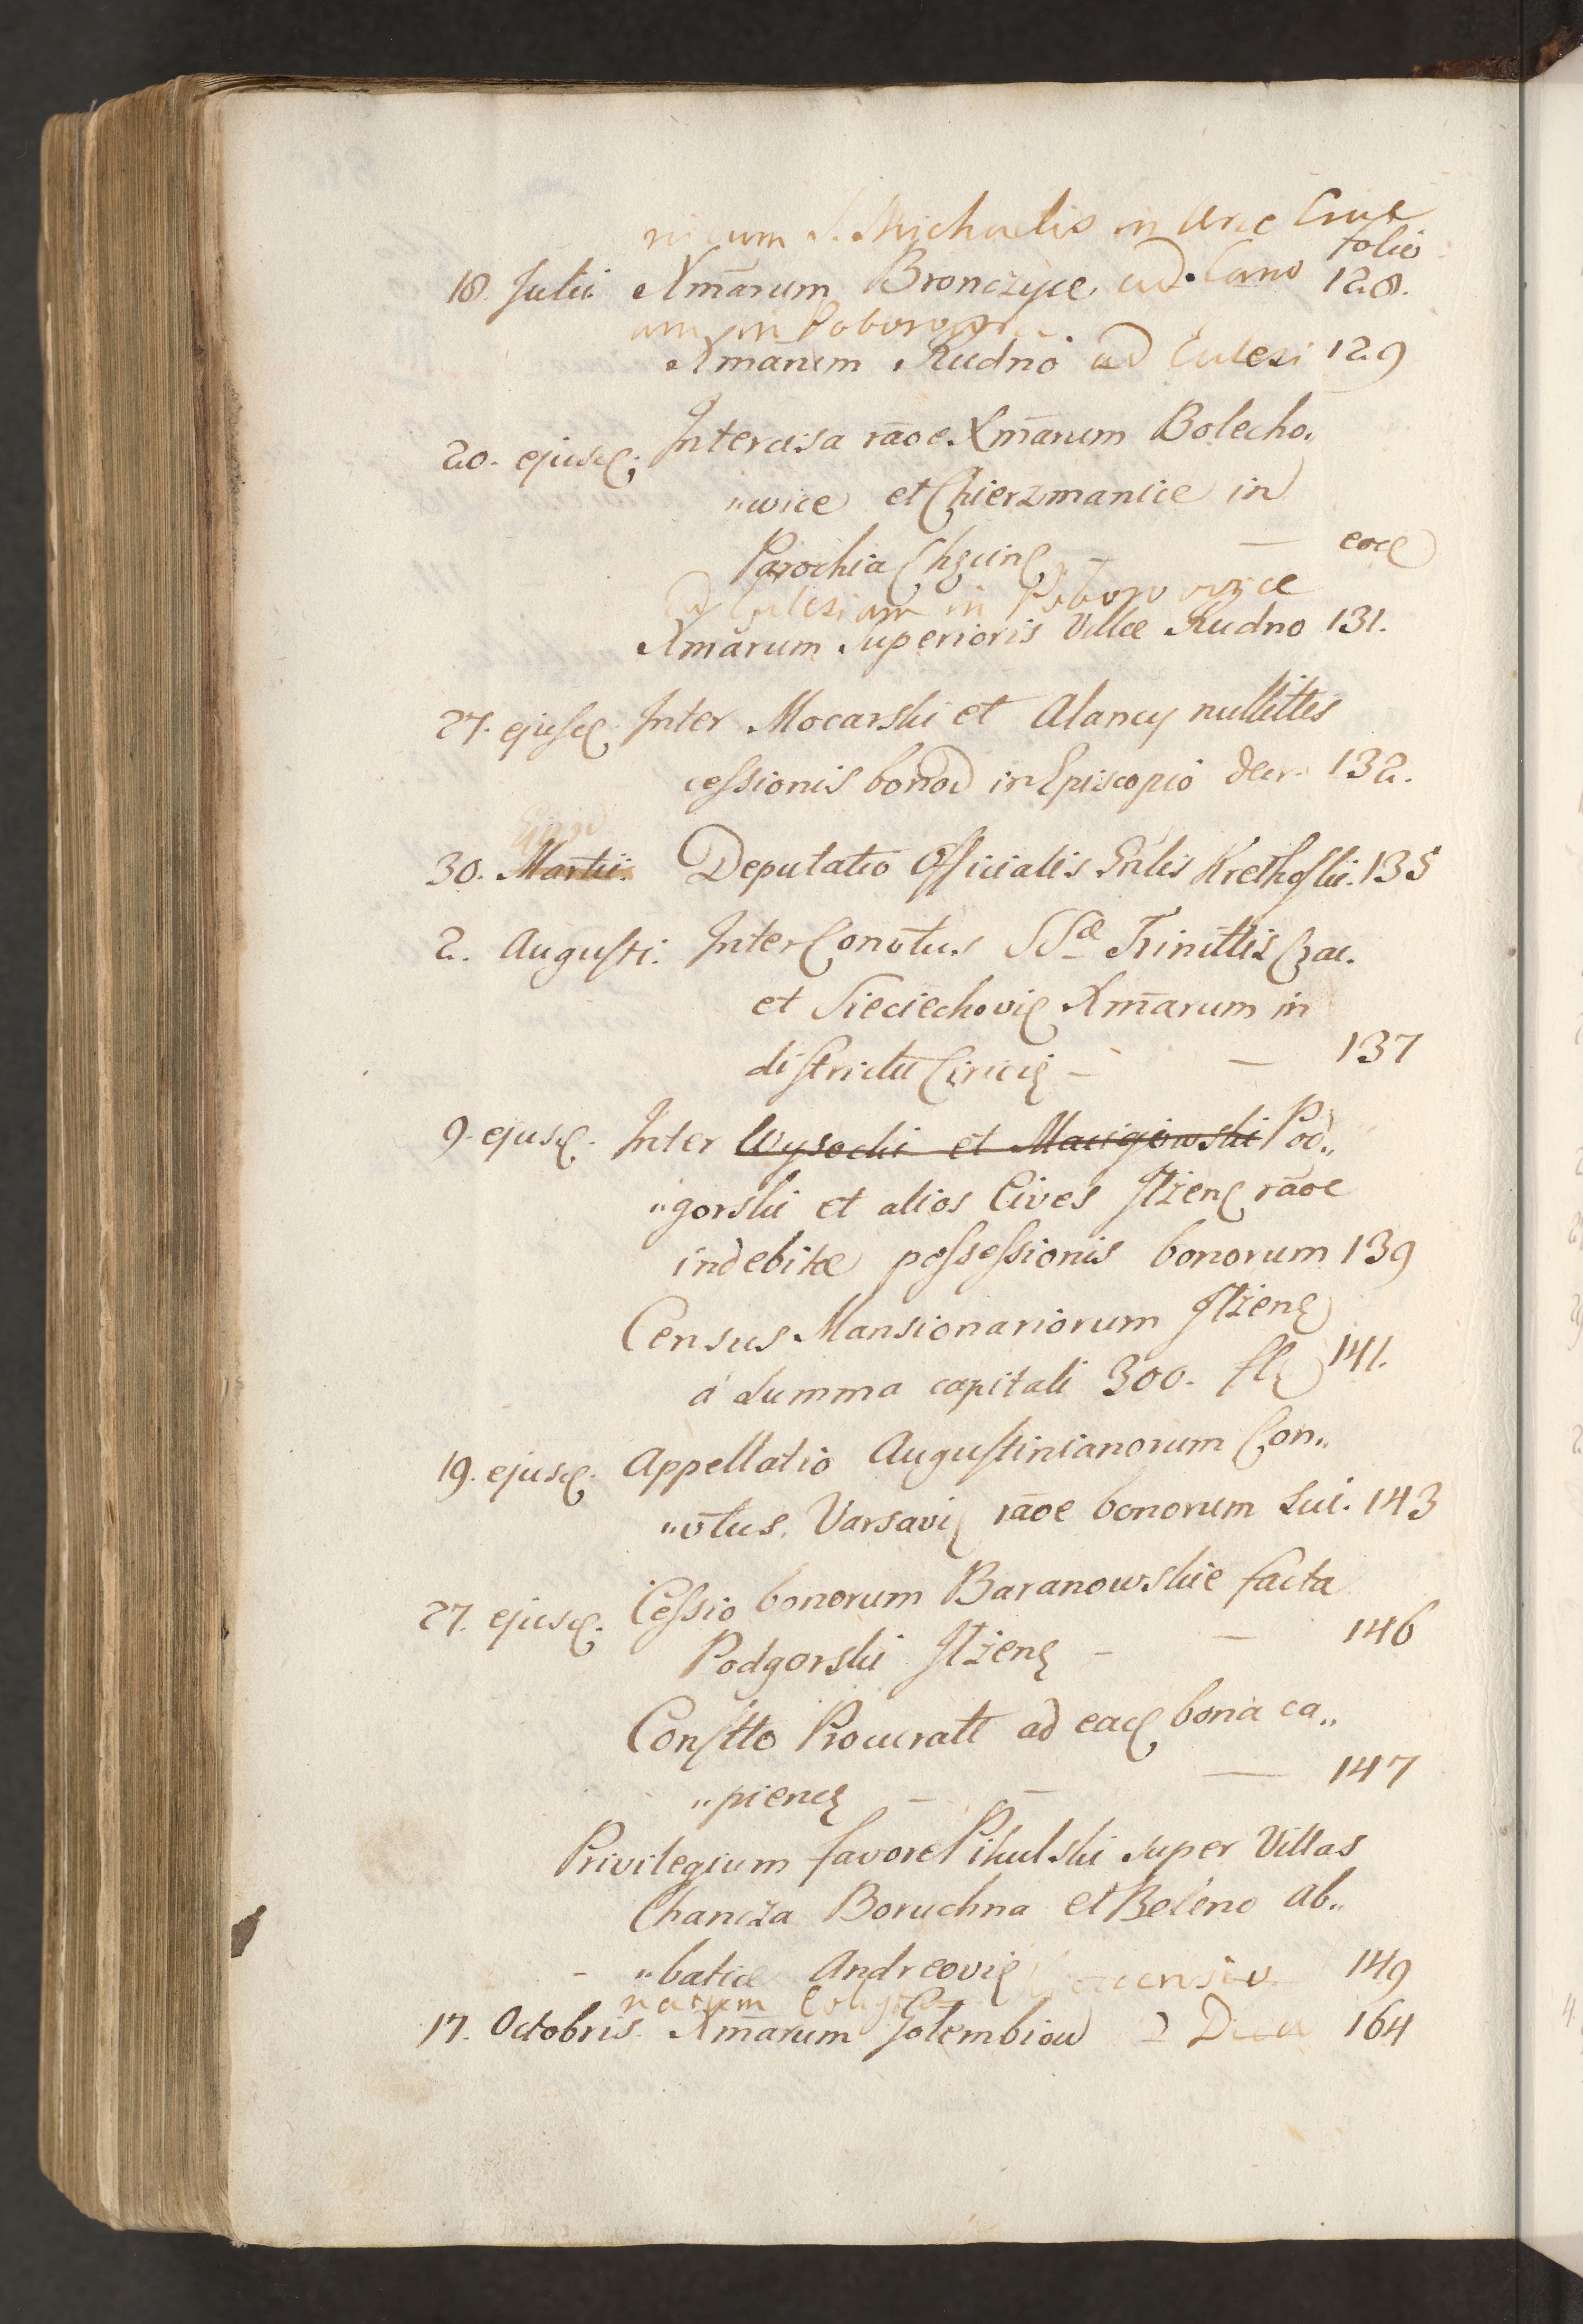 nicum S. Michaelis in Arce Crac
folio
18. Julii Xmarum Bronczyce, ad Cano 128.
am in Poborow
Xmarum Rudno ad Eclesi 129
20. ejusd. Intercisa raoe Xmarum Bolecho„
„wice et Chierzmanice in
Parochia Chęcin. — eod
ad Eclesiam in Poborowice
Xmarum Superioris Villæ Rudno 131.
27. ejusd. Inter Mocarski et Alancy nullittis
cessionis bonor in Episcopio decr. 132.
Ejusd
30. Martii. Deputatio Officialis Gnlis Kretkoski. 135
2. Augusti. Inter Convtus SSæ Trinittis Crac.
et Sieciechovi Xmarum in
districtu Cirici — — 137
9. ejusd. Inter Wysocki et Maciejowski Pod„
„gorski et alios Cives Ilżen raoe
indebitæ possessionis bonorum 139
Census Mansionariorum Ilżen
a summa capitali 300. fl 141.
19. ejusd. Appellatio Augustinianorum Con„
„vtus. Varsavi raoe bonorum sui. 143
27. ejusd. Cessio bonorum Baranowskie facta
Podgorski Ilżen — — 146
Constto Procurati ad ead bona ca„
„piend — — 147
Privilegium favore Pikulski super Villas
Chancza Boruchna et Beleno Ab„
„batiæ Andreovi 149
17. Octobris. Xmarum Golembiow 164